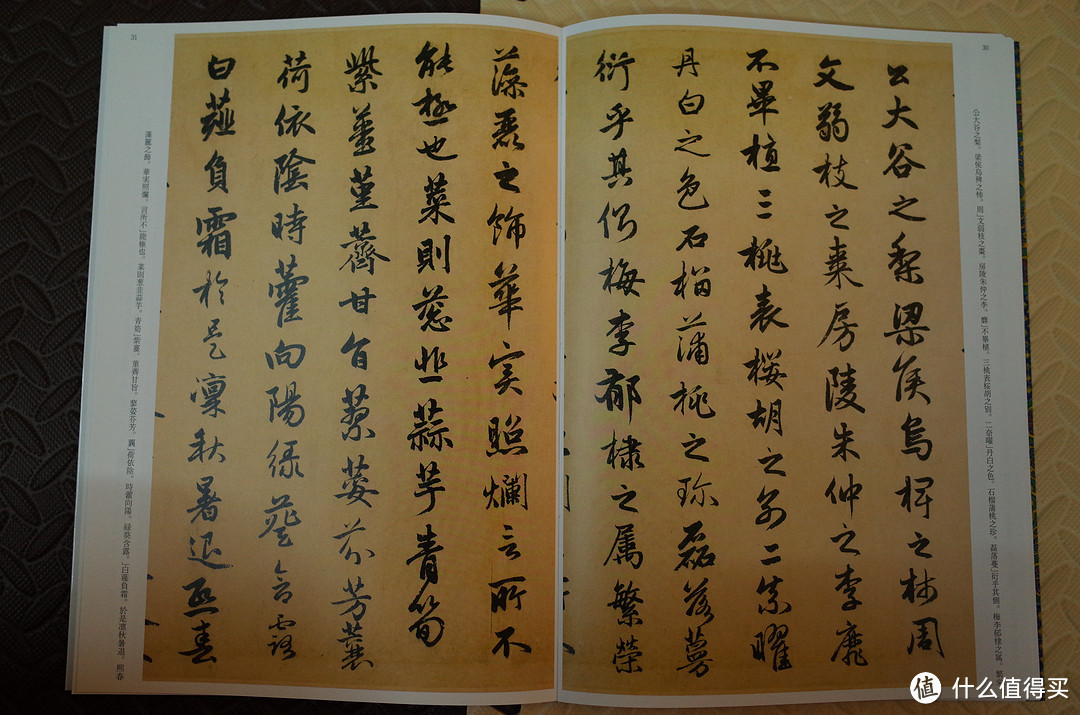 30
公大谷之梨。梁侯烏椑之柿。周」文弱枝之棗。房陵朱仲之李。靡」不畢植。三桃表桜胡之別。二柰曜」丹白之色。石榴蒲桃之珍。磊落蔓」衍乎其側。梅李郁棣之属。繁
公大谷之梨梁侯烏椑之柿周
文弱枝之棗房陵朱仲之李靡
不畢植三桃表桜胡之別二柰曜
丹白之色石榴蒲桃之珍磊落蔓
衍乎其側梅李郁棣之属繁榮
藻麗之飾華实照爛言所不
能極也菜則葱韭蒜芋青筍
紫薑菫薺甘旨蓼荽芬芳蘘
荷依陰時藿向陽緑葵含露
白薤負霜於是凛秋暑退熙春
31
藻麗之飾。華実照爛。言所不」能極也。菜則葱韭蒜芋。青筍」紫薑。菫薺甘旨。蓼荽芬芳。蘘」荷依陰。時藿向陽。緑葵含露。」白薤負霜。於是凛秋暑退。熙春
值 什么值得买